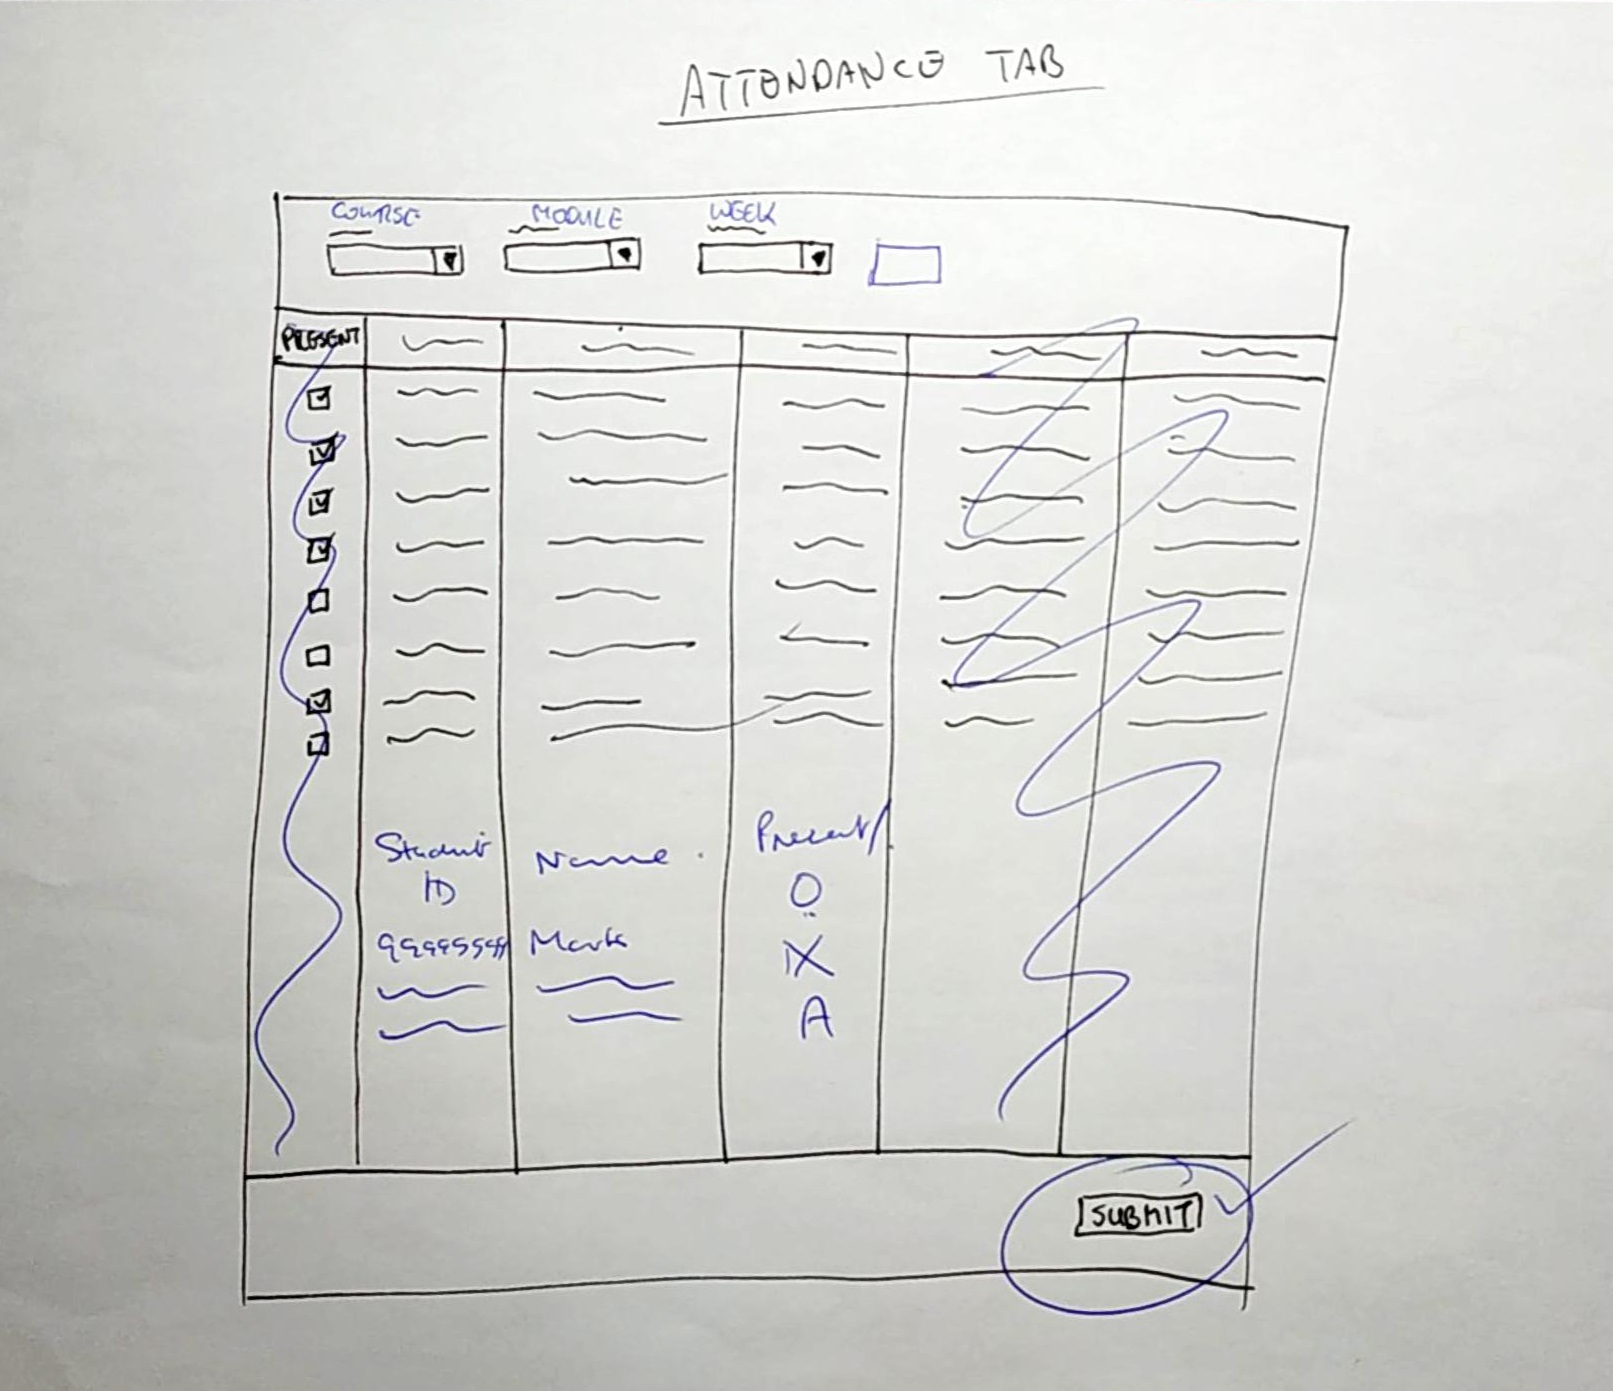 ATTENDANCE TAB
COURSE MODULE WEEK
PRESENT
Student Name Present/
ID O
Mark X
A
SUBMIT